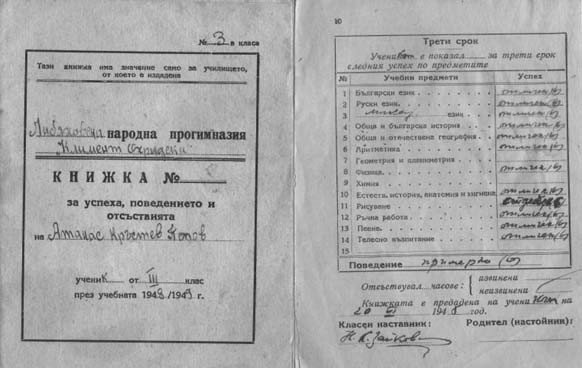 № 3 в класа
Тази книжка има значение само за училището,
от което е издадена
Либяховска народна прогимназия
Климент Охридски
КНИЖКА №
за успеха, поведението и
отсъствията
на Атанас Кръстев Попов
ученик от III клас
през учебната 1948/1949 г.
10
Трети срок
Ученикът е показал за трети срок
следния успех по предметите
№ Учебни предмети Успех
1 Български език отличен (6)
2 Руски език отличен (6)
3 език
4 Обща и българска история отличен (6)
5 Обща и отечествена география отличен (6)
6 Аритметика отличен (6)
7 Геометрия и планиметрия
8 Физика отличен (6)
9 Химия
10 Естеств. история, анатомия и хигиена отличен (6)
11 Рисуване отличен (6)
12 Ръчна работа отличен (6)
13 Пеене отличен (6)
14 Телесно възпитание отличен (6)
15
Поведение примерно (6)
Отсъствувал часове: извинени
неизвинени
Книжката е предадена на учени на
20 VI 194 год.
Класен наставник: Родител (настойник):